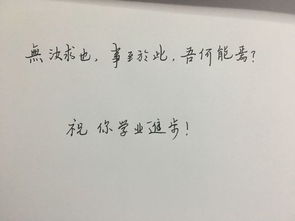 無汝求也，事至於此，吾何能焉？
祝你学业進步！